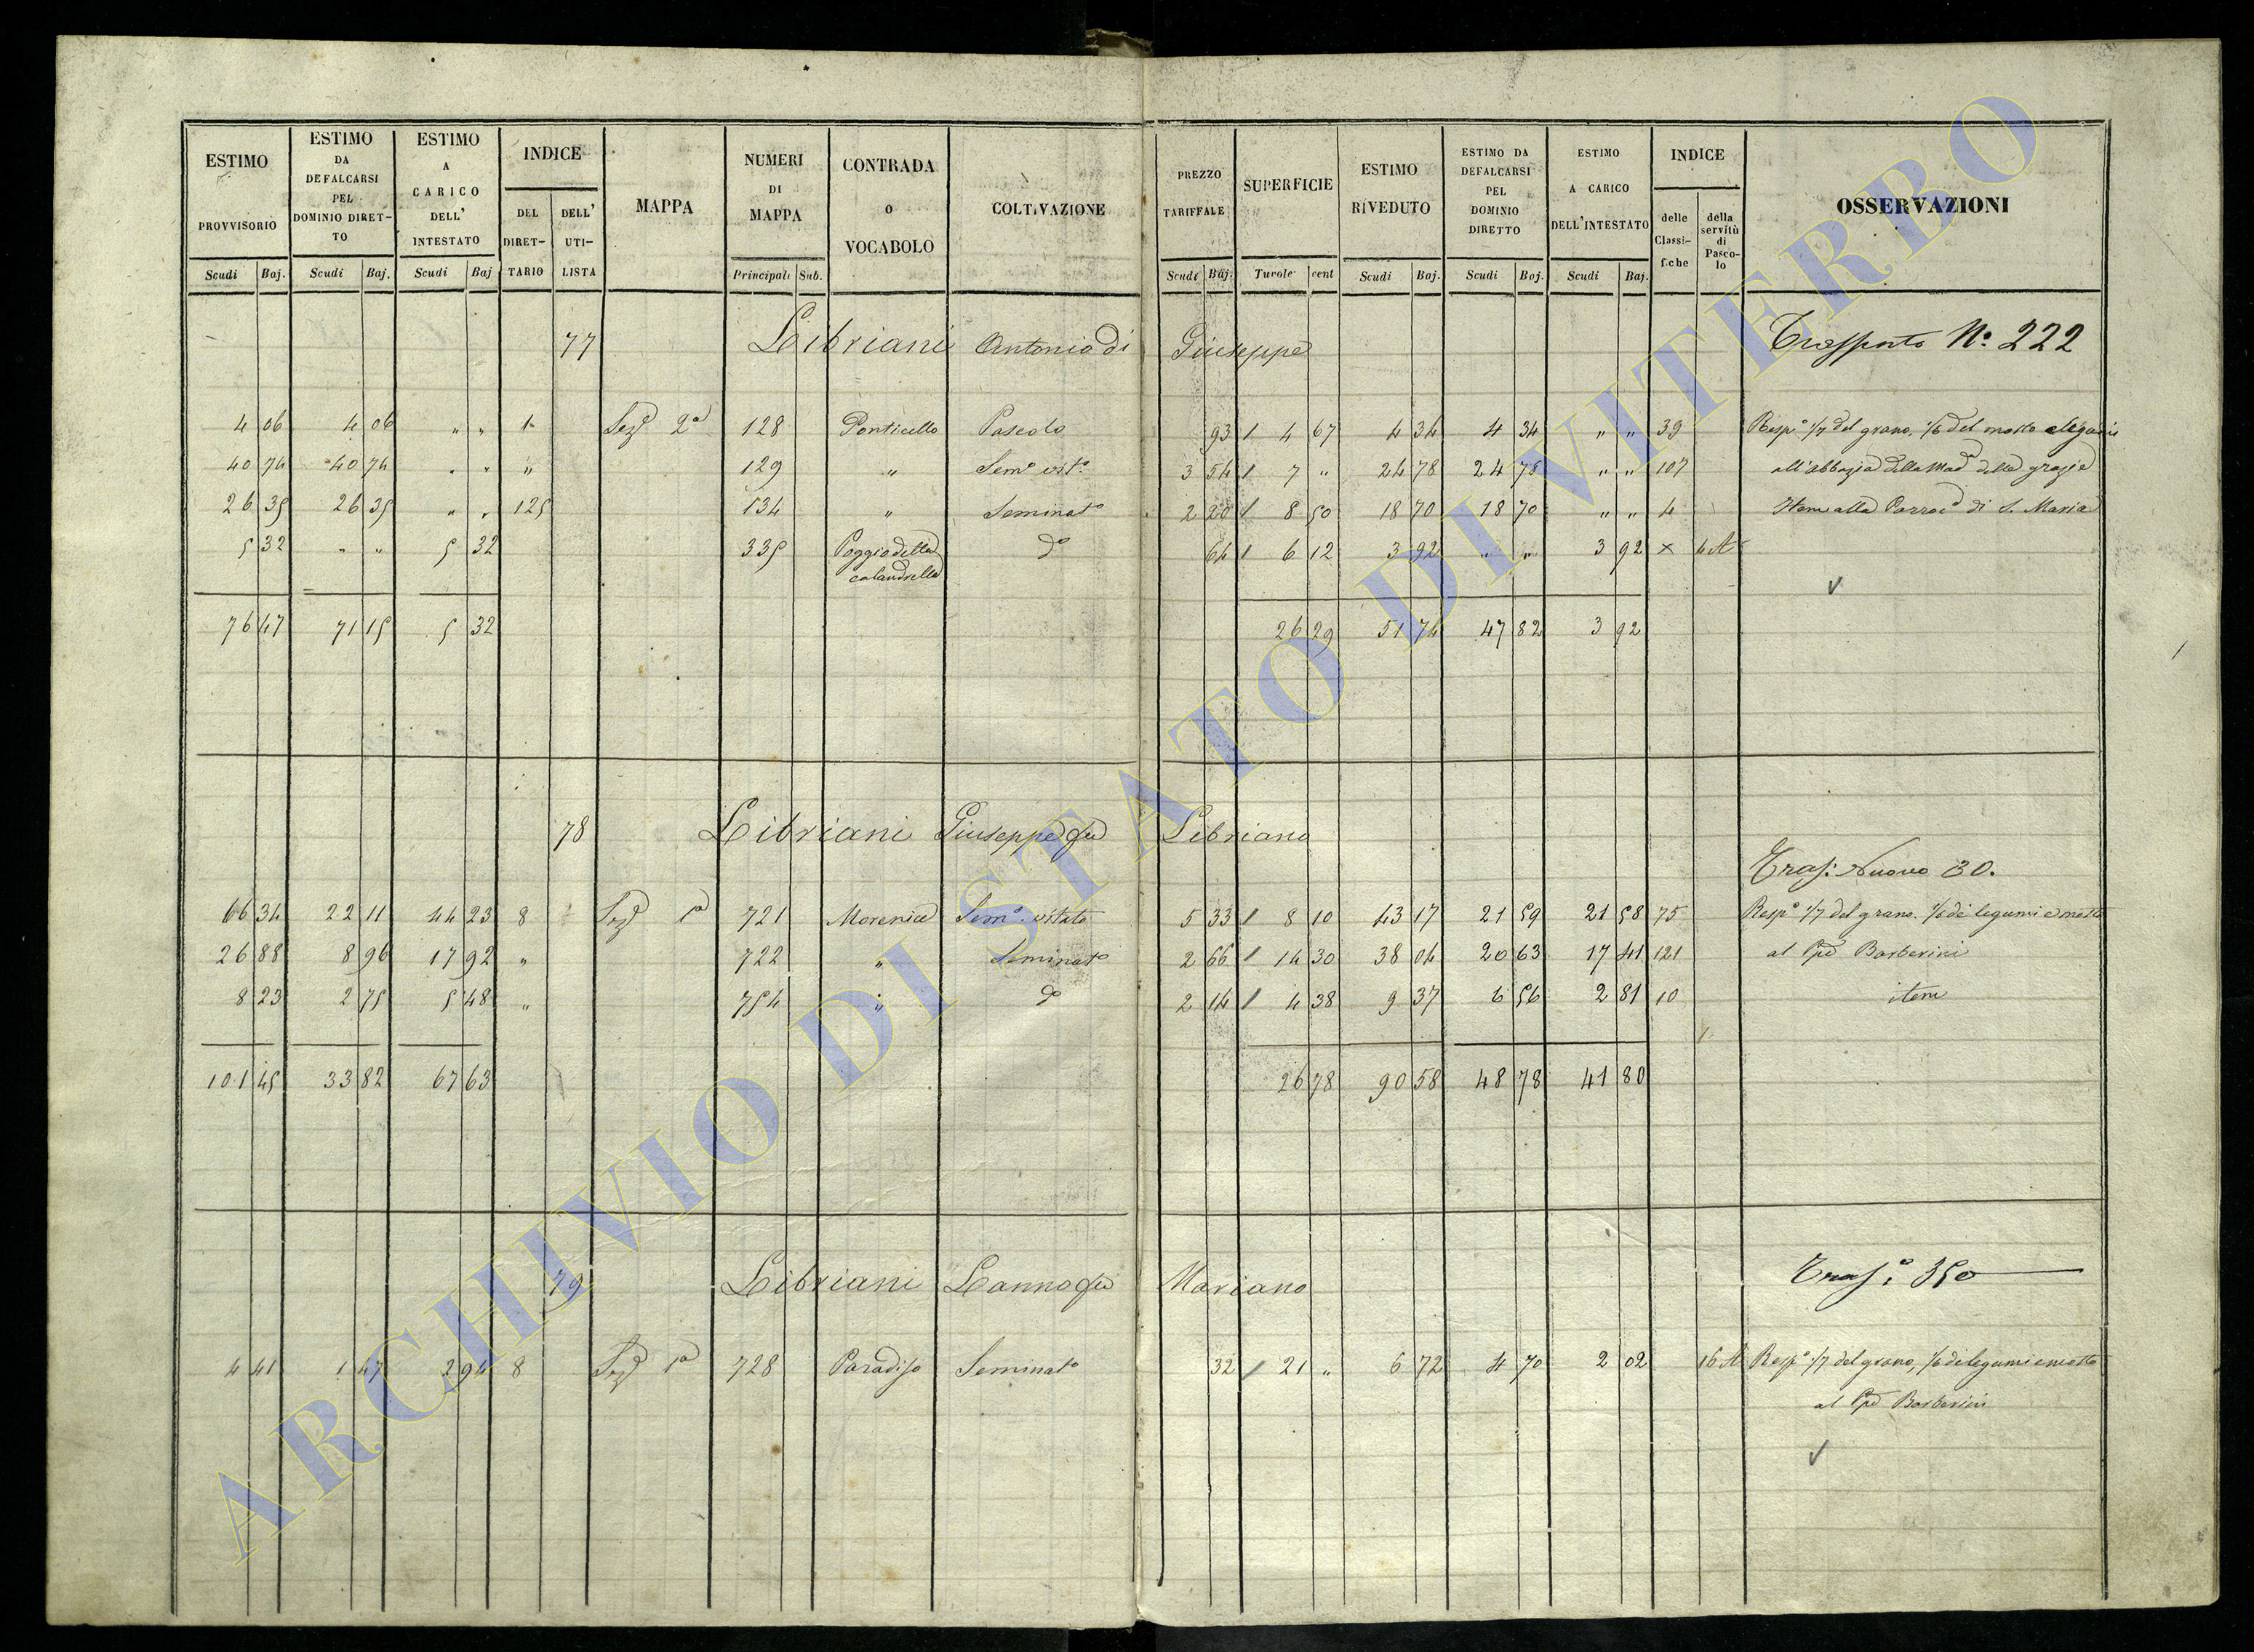 ESTIMO PROVVISORIO Scudi Baj.
ESTIMO DA DEFALCARSI PEL DOMINIO DIRET-TO Scudi Baj.
ESTIMO A CARICO DELL' INTESTATO Scudi Baj
INDICE DEL DIRET-TARIO DELL' UTI-LISTA
MAPPA
NUMERI DI MAPPA Principali Sub.
CONTRADA O VOCABOLO
COLTIVAZIONE
PREZZO TARIFFALE Scudi Baj.
SUPERFICIE Tavole cent
ESTIMO RIVEDUTO Scudi Baj.
ESTIMO DA DEFALCARSI PEL DOMINIO DIRETTO Scudi Baj.
ESTIMO A CARICO DELL'INTESTATO Scudi Baj.
INDICE delle Classi-fiche della servitù di Pasco-lo
OSSERVAZIONI
77 Libriani Antonio di Giuseppe Trasporto N.º 222
4 06 4 06 " " 1 Sezᵉ 2ª 128 Ponticello Pascolo 93 1 4 67 4 34 4 34 " " 39 Respº 1/7 del grano, 1/6 del mosto e legumi
40 74 40 74 " " " 129 " Semº vitº 3 54 1 7 " 24 78 24 78 " " 107 all'abbazia della Madª delle grazie
26 35 26 35 " " 125 134 " Seminatº 2 20 1 8 50 18 70 18 70 " " 4 Item alla Parrocª di S. Maria
5 32 " " 5 32 335 Poggio della dº 64 1 6 12 3 92 " " 3 92 x 4 A
calandrella
76 47 71 15 5 32 26 29 51 74 47 82 3 92
78 Libriani Giuseppe qu Libriano
Tras: Nuovo 30.
66 34 22 11 44 23 8 Sezᵉ 1ª 721 Morenice Semº vitato 5 33 1 8 10 43 17 21 59 21 58 75 Respº 1/7 del grano. 1/6 di legumi e mosto
26 88 8 96 17 92 " 722 " Seminatº 2 66 1 14 30 38 04 20 63 17 41 121 al Barberini
8 23 2 75 5 48 " 754 " dº 2 14 1 4 38 9 37 6 56 2 81 10 item
101 45 33 82 67 63 26 78 90 58 48 78 41 80
79 Libriani Lanno qu Mariano Trasº: 350
4 41 1 47 2 94 8 Sezᵉ 1ª 728 Paradiso Seminatº 32 1 21 " 6 72 4 70 2 02 16 A Respº 1/7 del grano, 1/6 di legumi e mosto
al Barberini
ARCHIVIO DI STATO DI VITERBO